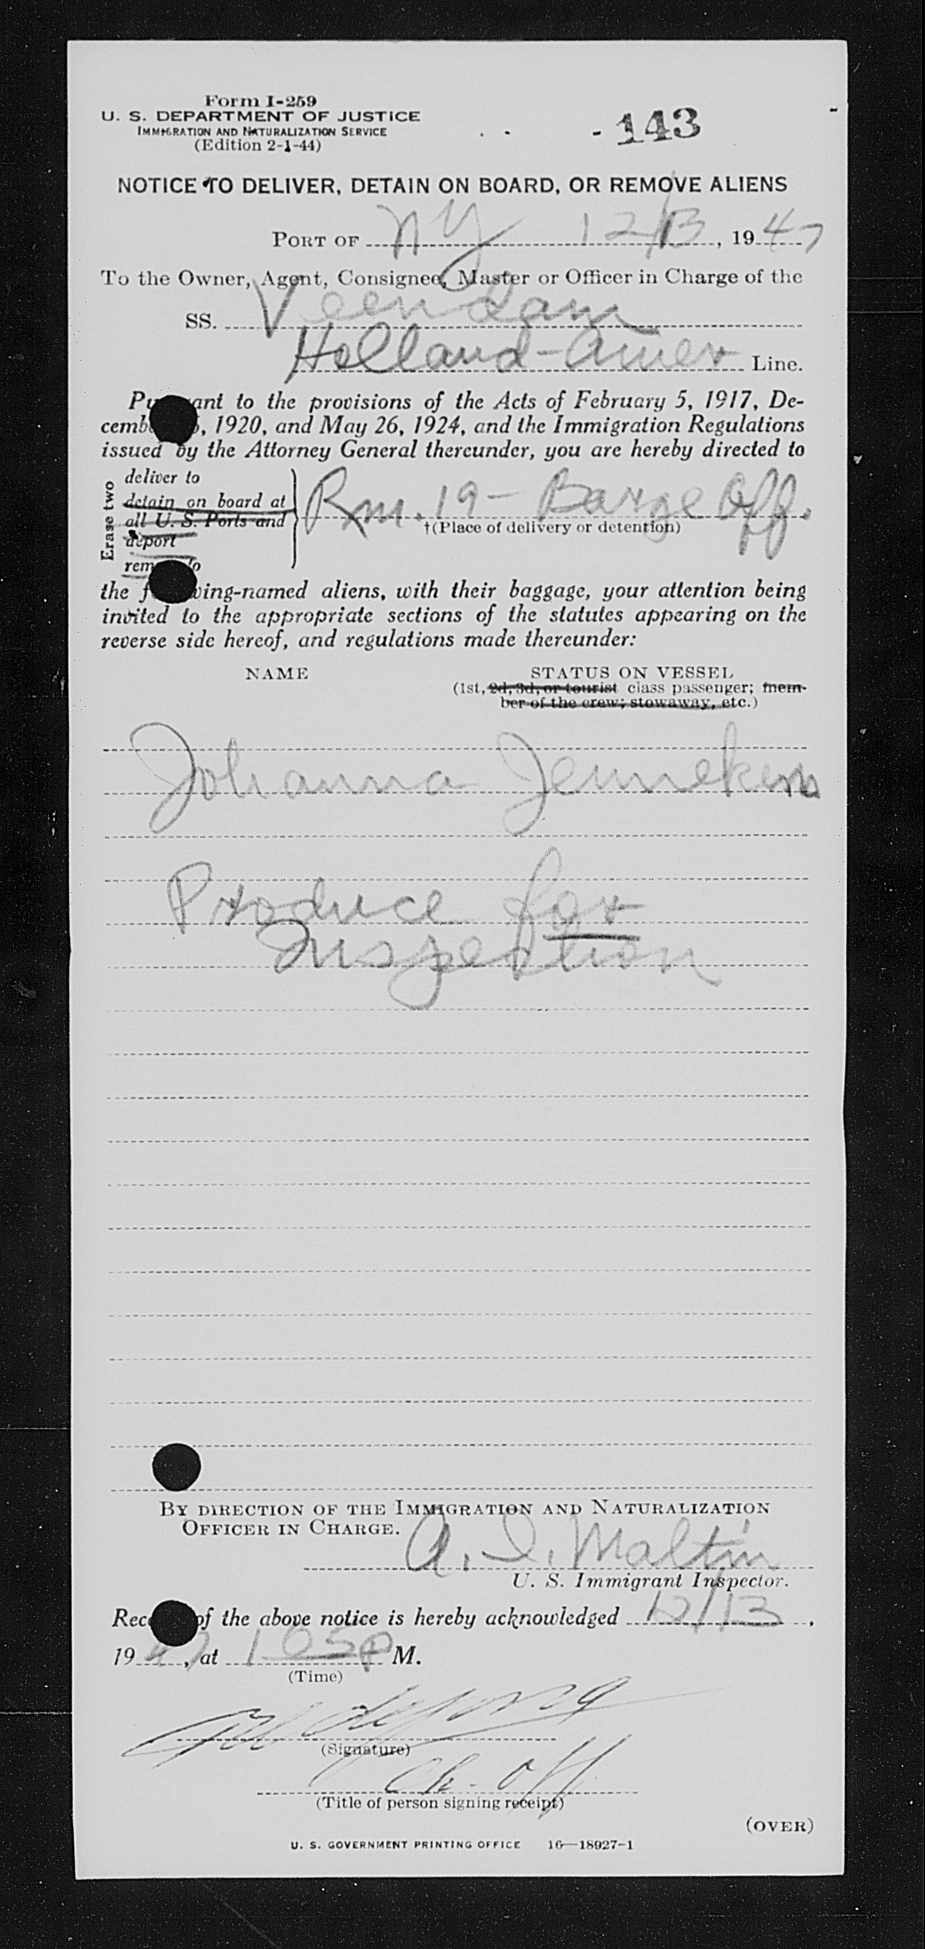 Form I-259
U. S. DEPARTMENT OF JUSTICE
IMMIGRATION AND NATURALIZATION SERVICE
(Edition 2-1-44)
143
NOTICE TO DELIVER, DETAIN ON BOARD, OR REMOVE ALIENS
PORT OF NY 12/13, 1947
To the Owner, Agent, Consignee, Master or Officer in Charge of the
SS. Veendam
Holland-Amer Line.
Pursuant to the provisions of the Acts of February 5, 1917, De-
cember, 1920, and May 26, 1924, and the Immigration Regulations
issued by the Attorney General thereunder, you are hereby directed to
Erase two
deliver to
detain on board at
all U. S. Ports and
deport
remove to
Rm. 19 - Barge Off.
†(Place of delivery or detention)
the following-named aliens, with their baggage, your attention being
invited to the appropriate sections of the statutes appearing on the
reverse side hereof, and regulations made thereunder:
NAME STATUS ON VESSEL
(1st, 2d, 3d, or tourist class passenger; mem-
ber of the crew; stowaway, etc.)
Johanna Jennekens
Produce for
Inspection
BY DIRECTION OF THE IMMIGRATION AND NATURALIZATION
OFFICER IN CHARGE.
A. I. Maltin
U. S. Immigrant Inspector.
Receipt of the above notice is hereby acknowledged 12/13,
1947, at 1 05 P M.
(Time)
(Signature)
Ch. Off
(Title of person signing receipt)
(OVER)
U. S. GOVERNMENT PRINTING OFFICE 16—18927-1